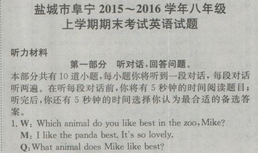 盐城市阜宁 2015～2016 学年八年级
上学期期末考试英语试题
听力材料
第一部分 听对话,回答问题。
本部分共有 10 道小题,每小题你将听到一段对话,每段对话
听两遍。在听每段对话前,你将有 5 秒钟的时间阅读题目;
听完后,你还有 5 秒钟的时间选择你认为最合适的备选答
案。
1. W: Which animal do you like best in the zoo, Mike?
M: I like the panda best. It's so lovely.
Q: What animal does Mike like best?